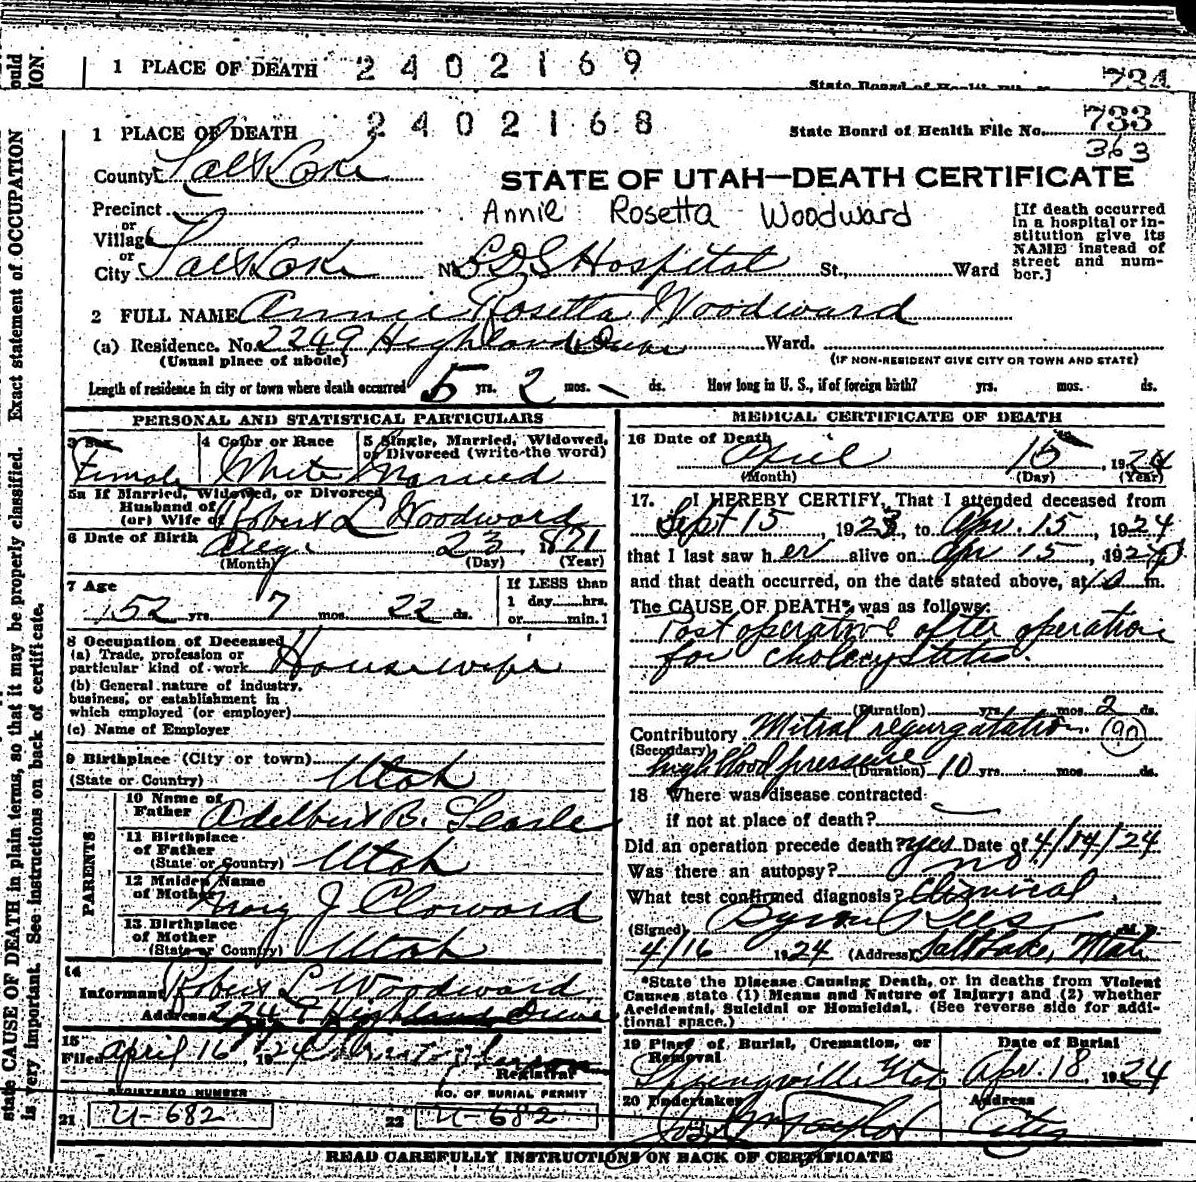 ould
ION.
1 PLACE OF DEATH 2402169
State Board of Health File No. 734
1 PLACE OF DEATH 2402168
State Board of Health File No. 733
363
County Salt Lake
STATE OF UTAH—DEATH CERTIFICATE
Precinct
Annie Rosetta Woodward
or
Village
or
City Salt Lake No. LDS Hospital St., Ward
[If death occurred
in a hospital or in-
stitution give its
NAME instead of
street and num-
ber.]
2 FULL NAME Annie Rosetta Woodward
(a) Residence. No. 2249 Highland Drive Ward.
(Usual place of abode) (IF NON-RESIDENT GIVE CITY OR TOWN AND STATE)
Length of residence in city or town where death occurred 5 yrs. 2 mos. - ds. How long in U. S., if of foreign birth? yrs. mos. ds.
PERSONAL AND STATISTICAL PARTICULARS
3 Sex 4 Color or Race 5 Single, Married, Widowed,
or Divorced (write the word)
Female White Married
5a If Married, Widowed, or Divorced
Husband of
(or) Wife of Robert L Woodward
6 Date of Birth Aug. 23, 1871
(Month) (Day) (Year)
7 Age If LESS than
1 day......hrs.
52 yrs. 7 mos. 22 ds. or......min.
8 Occupation of Deceased
(a) Trade, profession or
particular kind of work Housewife
(b) General nature of industry,
business, or establishment in
which employed (or employer)
(c) Name of Employer
9 Birthplace (City or town)
(State or Country) Utah
PARENTS
10 Name of
Father Adelbert B. Searle
11 Birthplace
of Father
(State or Country) Utah
12 Maiden Name
of Mother Mary J Cloward
13 Birthplace
of Mother
(State or Country) Utah
14
Informant Robert L Woodward
Address 2249 Highland Drive
15
Filed April 16, 1924
Registrar
REGISTERED NUMBER NO. OF BURIAL PERMIT
21 U-682 22 U-682
MEDICAL CERTIFICATE OF DEATH
16 Date of Death
April 15, 1924
(Month) (Day) (Year)
17. I HEREBY CERTIFY, That I attended deceased from
Sept 15, 1923, to Apr. 15, 1924
that I last saw her alive on Apr 15, 1924
and that death occurred, on the date stated above, at m.
The CAUSE OF DEATH* was as follows:
Post operative after operation
for cholecystitis.
(Duration) yrs. mos. 2 ds.
Contributory Mitral regurgatation. 90
(Secondary)
high blood pressure (Duration) 10 yrs. mos. ds.
18 Where was disease contracted
if not at place of death?
Did an operation precede death? yes Date of 4/14/24
Was there an autopsy? no
What test confirmed diagnosis? Clinical
(Signed) Byron Rees M.D.
4/16 1924 (Address) Salt Lake, Utah
*State the Disease Causing Death, or in deaths from Violent
Causes state (1) Means and Nature of Injury; and (2) whether
Accidental, Suicidal or Homicidal. (See reverse side for addi-
tional space.)
19 Place of, Burial, Cremation, or
Removal
Springville Utah
Date of Burial
Apr. 18, 1924
20 Undertaker
Address
City
READ CAREFULLY INSTRUCTIONS ON BACK OF CERTIFICATE
state CAUSE OF DEATH in plain terms, so that it may be properly classified. Exact statement of OCCUPATION
is very important. See instructions on back of certificate.